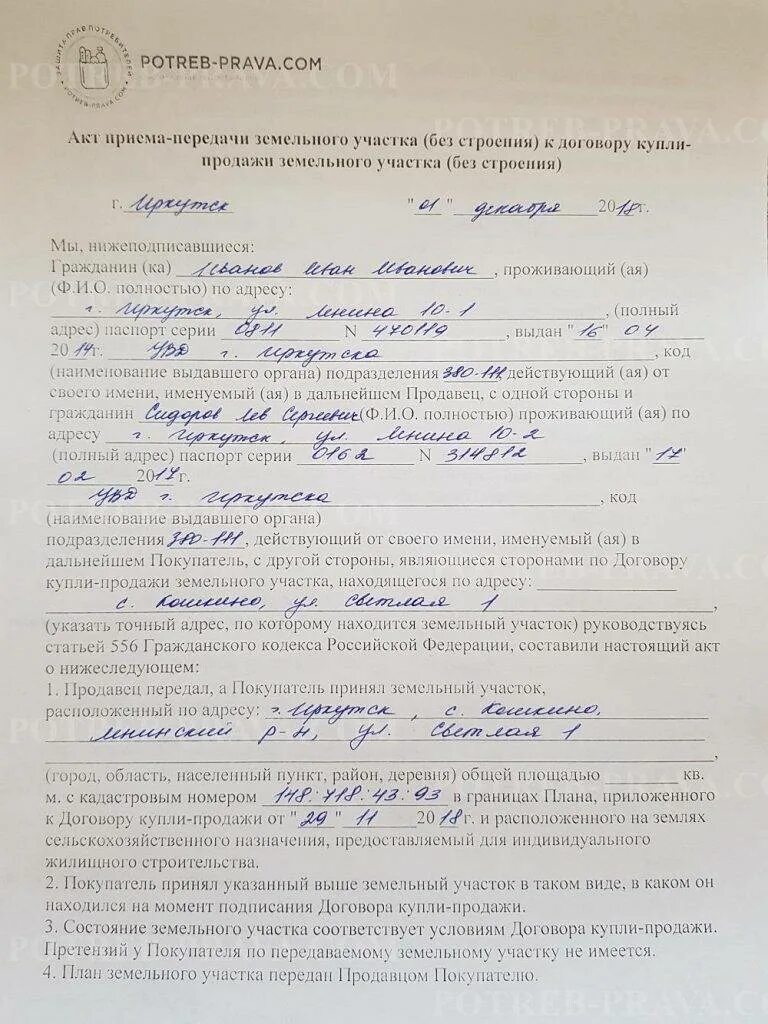 ЗАЩИТА ПРАВ ПОТРЕБИТЕЛЕЙ
POTREB-PRAVA.COM
POTREB-PRAVA.COM
Акт приема-передачи земельного участка (без строения) к договору купли-
продажи земельного участка (без строения)
г. Иркутск "01" декабря 2018г.
Мы, нижеподписавшиеся:
Гражданин (ка) Иванов Иван Иванович, проживающий (ая)
(Ф.И.О. полностью) по адресу:
г. Иркутск, ул. Ленина 10-1, (полный
адрес) паспорт серии 0811 N 470119, выдан "16" 04
2014г. УВД г. Иркутска, код
(наименование выдавшего органа) подразделения 380-111, действующий (ая) от
своего имени, именуемый (ая) в дальнейшем Продавец, с одной стороны и
гражданин Сидоров Лев Сергеевич (Ф.И.О. полностью) проживающий (ая) по
адресу г. Иркутск, ул. Ленина 10-2
(полный адрес) паспорт серии 0162 N 314812, выдан "17"
02 2017г.
УВД г. Иркутска, код
(наименование выдавшего органа)
подразделения 380-111, действующий от своего имени, именуемый (ая) в
дальнейшем Покупатель, с другой стороны, являющиеся сторонами по Договору
купли-продажи земельного участка, находящегося по адресу:
с. Кошкино, ул. Светлая 1,
(указать точный адрес, по которому находится земельный участок) руководствуясь
статьей 556 Гражданского кодекса Российской Федерации, составили настоящий акт
о нижеследующем:
1. Продавец передал, а Покупатель принял земельный участок,
расположенный по адресу: г. Иркутск, с. Кошкино,
Ленинский р-н, ул. Светлая 1
,
(город, область, населенный пункт, район, деревня) общей площадью кв.
м. с кадастровым номером 148:718:43:93 в границах Плана, приложенного
к Договору купли-продажи от "29" 11 2018г. и расположенного на землях
сельскохозяйственного назначения, предоставляемый для индивидуального
жилищного строительства.
2. Покупатель принял указанный выше земельный участок в таком виде, в каком он
находился на момент подписания Договора купли-продажи.
3. Состояние земельного участка соответствует условиям Договора купли-продажи.
Претензий у Покупателя по передаваемому земельному участку не имеется.
4. План земельного участка передан Продавцом Покупателю.